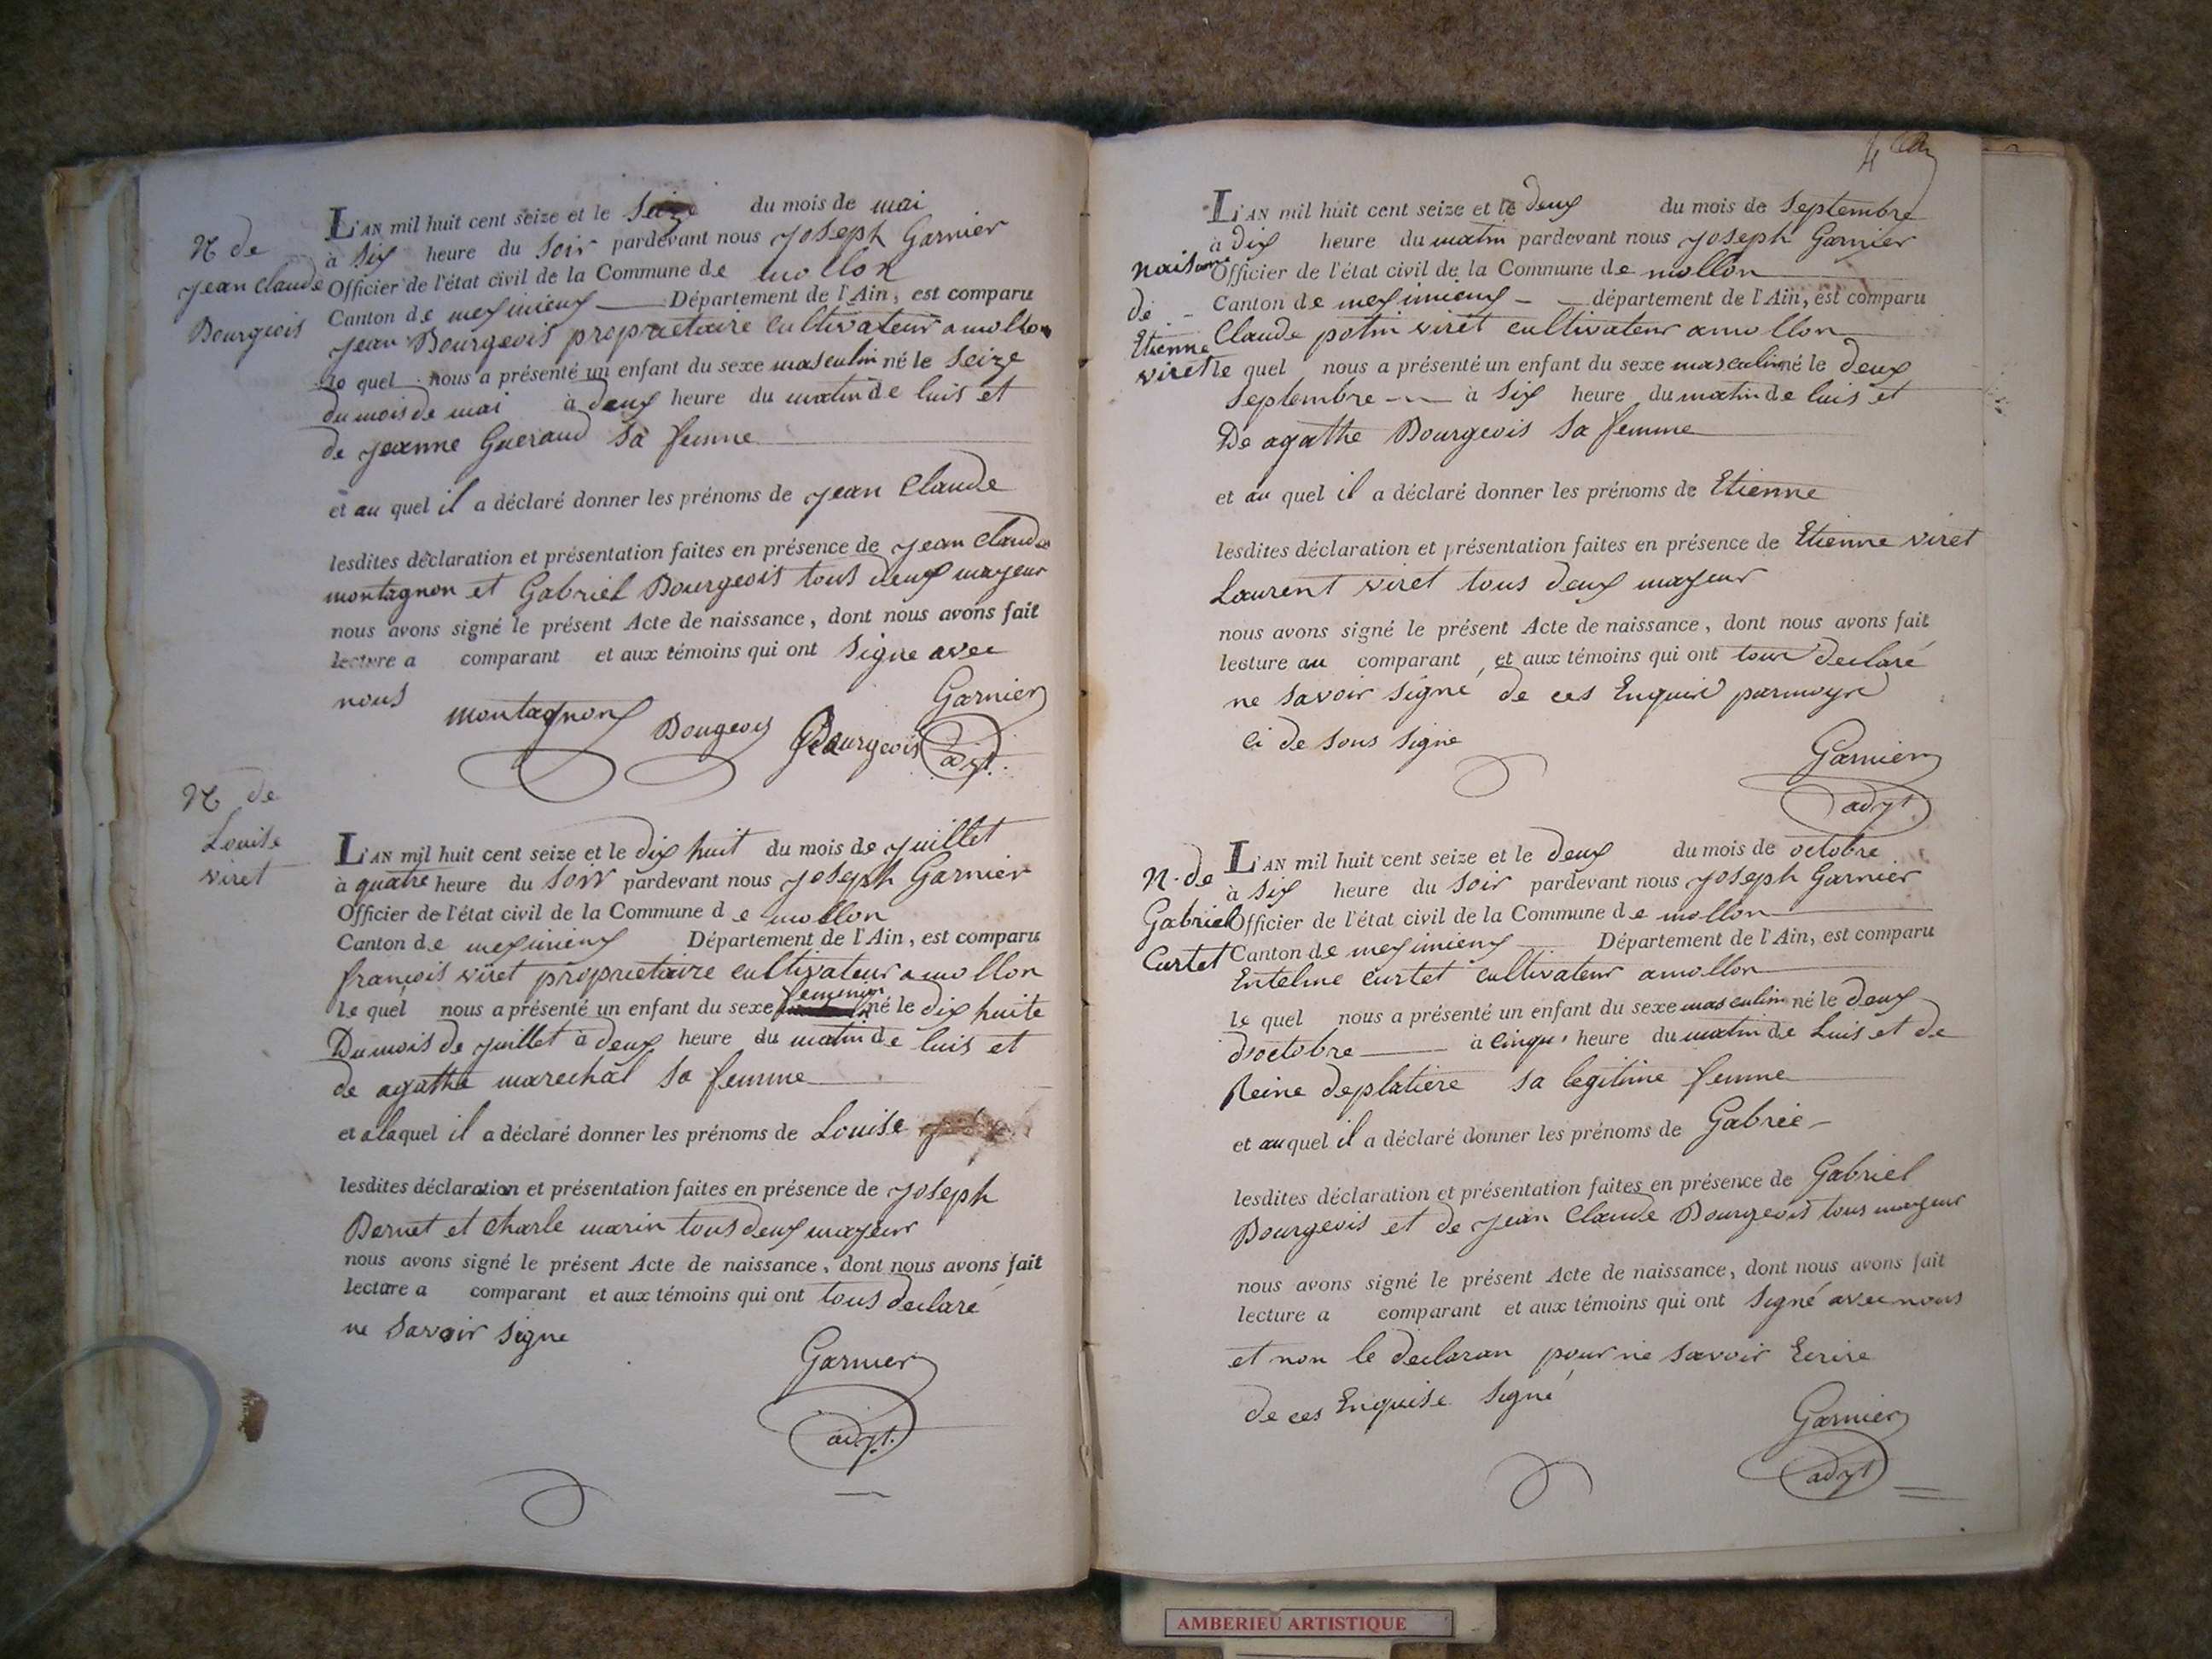 N de
Jean Claude
Bourgeois
L'AN mil huit cent seize et le Seize du mois de mai
à Six heure du Soir pardevant nous Joseph Garnier
Officier de l'état civil de la Commune de mollon
Canton de meximieux Département de l'Ain, est comparu
Jean Bourgeois propriétaire cultivateur a mollon
le quel nous a présenté un enfant du sexe masculin né le Seize
du mois de mai à deux heure du matin de luis et
de Jeanne Gueraud Sa femme
et au quel il a déclaré donner les prénoms de Jean Claude
lesdites déclaration et présentation faites en présence de Jean Claude
montagnon et Gabriel Bourgeois tous deux mayeur
nous avons signé le présent Acte de naissance, dont nous avons fait
lecture a comparant et aux témoins qui ont Signe avec
nous
montagnon Bougeois Bourgeois Garnier
adjt.
N de
Louise
viret
L'AN mil huit cent seize et le dix huit du mois de Juillet
à quatre heure du Soir pardevant nous Joseph Garnier
Officier de l'état civil de la Commune de mollon
Canton de meximieux Département de l'Ain, est comparu
françois viret proprietaire cultivateur a mollon
le quel nous a présenté un enfant du sexe femenin né le dix huite
Du mois de Juillet à deux heure du matin de luis et
de agathe marechal Sa femme
et a laquel il a déclaré donner les prénoms de Louise
lesdites déclaration et présentation faites en présence de Joseph
Bernet et Charle marin tous deux mayeur
nous avons signé le présent Acte de naissance, dont nous avons fait
lecture a comparant et aux témoins qui ont tous declaré
ne Savoir signe
Garnier
adjt.
4
naisance
de
Etienne
viret
L'AN mil huit cent seize et le deux du mois de Septembre
à Dix heure du matin pardevant nous Joseph Garnier
Officier de l'état civil de la Commune de mollon
Canton de meximieux département de l'Ain, est comparu
Claude potin viret cultivateur a mollon
le quel nous a présenté un enfant du sexe masculin né le deux
Septembre à Six heure du matin de luis et
De agathe Bourgeois Sa femme
et au quel il a déclaré donner les prénoms de Etienne
lesdites déclaration et présentation faites en présence de Etienne viret
Laurent viret tous deux mayeur
nous avons signé le présent Acte de naissance, dont nous avons fait
lecture au comparant et aux témoins qui ont tous declaré
ne Savoir signé de ces Enquis
ci de Sous Signe
Garnier
adjt
N. de
Gabriel
Curtet
L'AN mil huit cent seize et le deux du mois de octobre
à Six heure du Soir pardevant nous Joseph Garnier
Officier de l'état civil de la Commune de mollon
Canton de meximieux Département de l'Ain, est comparu
Entelme curtet cultivateur a mollon
le quel nous a présenté un enfant du sexe masculin né le deux
d'octobre à cinque heure du matin de Luis et de
Reine deplatiere sa legitime femme
et au quel il a déclaré donner les prénoms de Gabrie
lesdites déclaration et présentation faites en présence de Gabriel
Bourgeois et de Jean Claude Bourgeois tous mayeur
nous avons signé le présent Acte de naissance, dont nous avons fait
lecture a comparant et aux témoins qui ont Signé avec nous
et non le declaran pour ne Savoir Ecrire
de ces Enquise Signé
Garnier
adjt
AMBERIEU ARTISTIQUE